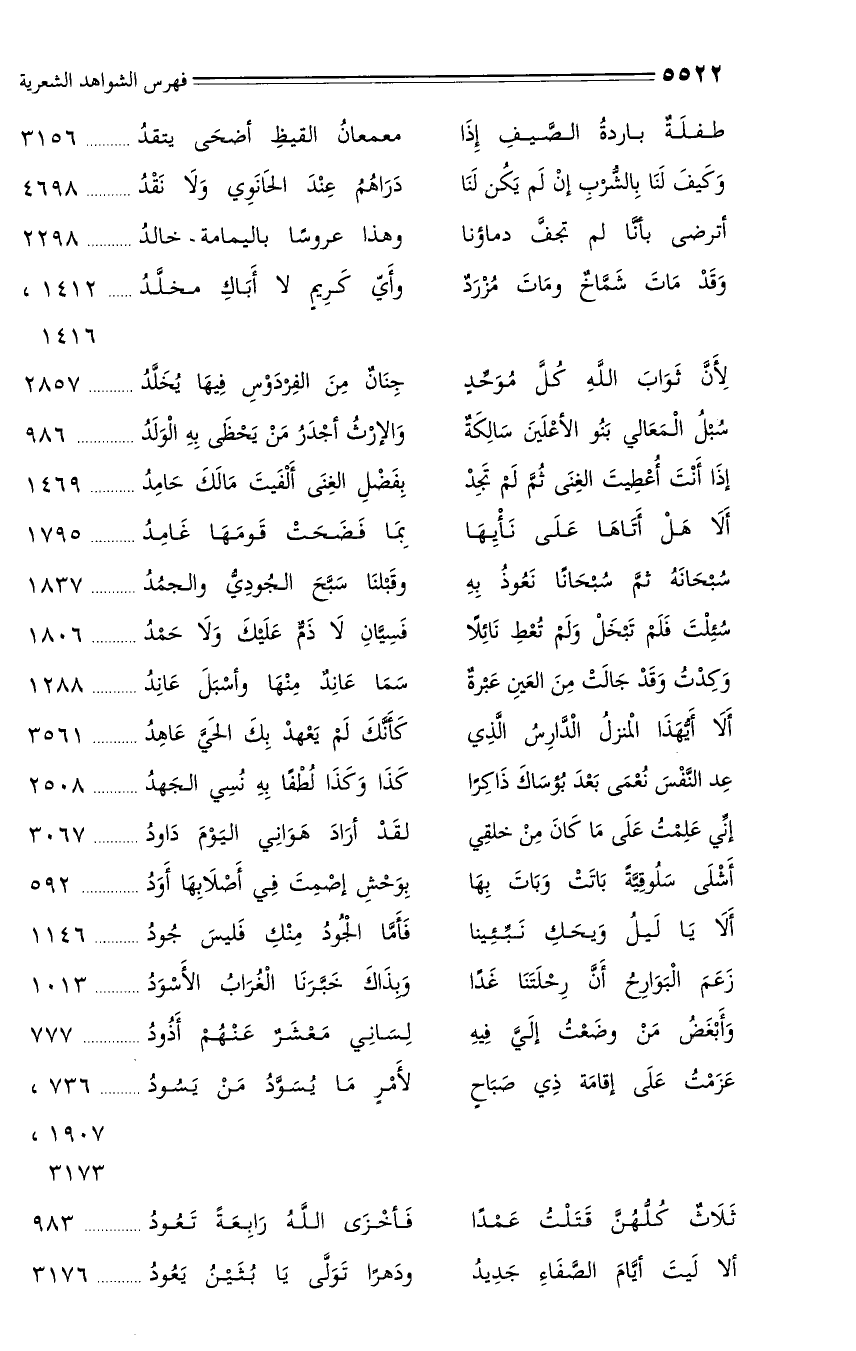 ٥٥٢٢ فهرس الشواهد الشعرية
طفلَةٌ باردةُ الصَّيفِ إِذَا معمعانُ القيظِ أضحَى يتقدُ ........... ٣١٥٦
وَكَيفَ لَنَا بِالشُّرْبِ إِنْ لَم يَكُن لَنَا دَرَاهُمُ عِنْدَ الحَانَوِي وَلَا نَقْدُ ........... ٤٦٩٨
أترضى بأنَّا لم تجفَّ دماؤنا وهذا عروسًا باليمامة خالدُ ........... ٢٢٩٨
وَقَدْ مَاتَ شَمَّاخٌ ومَاتَ مُزْرَدٌ وأَيّ كَرِيمٍ لا أَبَاكِ مخلَّدُ ...... ١٤١٢ ،
١٤١٦
لِأَنَّ ثَوَابَ اللَّهِ كُلَّ مُوَحِّدٍ جِنَانٌ مِنَ الفِرْدَوْسِ فِيهَا يُخَلَّدُ ........... ٢٨٥٧
سُبْلُ الْمَعَالي بَنُو الأعْلَينَ سَالِكَةٌ وَالإرْثُ أجْدَرُ مَنْ يَحْظَى بِهِ الْوَلَدُ .............. ٩٨٦
إذَا أَنْتَ أُعْطِيتَ الغِنَى ثُمَّ لَمْ تَجِدْ بِفَضْلِ الغِنَى أَلْفَيتَ مَالَكَ حَامِدُ ........... ١٤٦٩
أَلَا هَلْ أَتَاهَا عَلَى نَأْيِهَا بِمَا فَضَحَتْ قَومَهَا غَامِدُ ........... ١٧٩٥
سُبْحَانَهُ ثمَّ سُبْحَانًا نَعُوذُ بِهِ وقَبْلنَا سَبَّحَ الجُودِيُّ والجمُدُ ........... ١٨٣٧
سُئِلْتَ فَلَمْ تَبْخَلْ وَلَمْ تُعْطِ نَائِلًا فَسِيَّانِ لَا ذَمٌّ عَلَيْكَ وَلَا حَمْدُ ........... ١٨٠٦
وَكِدْتُ وَقَدْ جَالَتْ مِنَ العَينِ عَبْرةٌ سَمَا عَانِدٌ مِنْهَا وأسْبَلَ عَانِدُ ........... ١٢٨٨
أَلَا أَيُّهَذَا الْمنزلُ الدَّارِسُ الَّذِي كَأَنَّكَ لَمْ يَعْهدْ بِكَ الحَيَّ عَاهِدُ ........... ٣٥٦١
عِد النَّفْسَ نُعْمَى بَعْدَ بُؤسَاكَ ذَاكِرًا كَذَا وَكَذَا لُطْفًا بِهِ نُسِي الجَهدُ ........... ٢٥٠٨
إنِّي عَلِمْتُ عَلَى مَا كَانَ مِنْ خلقِي لقَدْ أرَادَ هَوَانِي اليَوْمَ دَاودُ ........... ٣٠٦٧
أَشْلَى سَلُوقِيَّةً بَاتَتْ وَبَاتَ بِهَا بِوَحْشِ إصْمِتَ فِي أَصْلَابِهَا أَوَدُ .............. ٥٩٢
أَلَا يَا لَيلُ وَيحَكِ نَبِّئِينا فَأَمَّا الْجُودُ مِنْكِ فَليسَ جُودُ ........... ١١٤٦
زَعَمَ الْبَوَارِحُ أَنَّ رِحْلَتَنَا غَدًا وَبِذَاكَ خَبَّرَنَا الْغُرَابُ الأَسْوَدُ ........... ١٠١٣
وَأَبْغَضُ مَنْ وضَعْتُ إلَيَّ فِيهِ لِسَانِي مَعْشَرٌ عَنْهُمْ أَذُودُ .............. ٧٧٧
عَزَمْتُ عَلَى إقامَة ذِي صَبَاحٍ لأَمْرٍ مَا يُسَوَّدُ مَنْ يَسُودُ .......... ٧٣٦ ،
١٩٠٧ ،
٣١٧٣
ثَلَاثٌ كُلُّهُنَّ قَتَلْتُ عَمْدًا فَأخْزَى اللَّهُ رَابِعَةً تَعُودُ .............. ٩٨٣
ألا لَيتَ أيَّامَ الصَّفَاءِ جَدِيدُ ودَهرًا تَوَلَّى يَا بُثَيْنُ يَعُودُ ........... ٣١٧٦